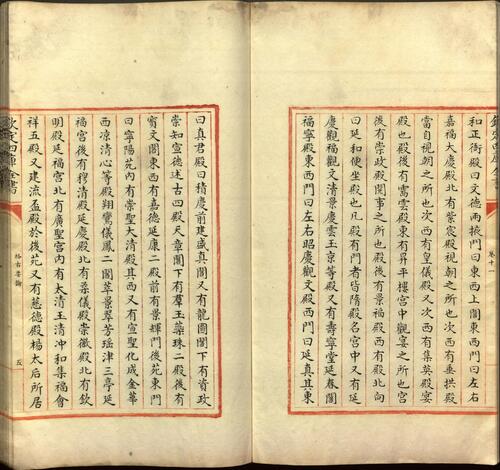 欽定四庫全書
卷十一
和正衙殿曰文德兩掖門曰東西上閤東西門曰左右
嘉福大慶殿北有紫宸殿視朝之所也次西有垂拱殿
常日視朝之所也次西有皇儀殿又次西有集英殿宴
殿也殿後有需雲殿東有昇平樓宮中觀宴之所也宮
後有崇政殿閱事之所也殿後有景福殿西有殿北向
曰延和便坐殿也凡殿有門者皆隨殿名宮中又有延
慶觀福觀文清景慶雲玉京等殿又有壽寧堂延春閣
福寧殿東西門曰左右昭慶觀文殿西門曰延真其東
曰真君殿曰積慶前建盛真閣又有龍圖閣下有資政
崇知宣德述古四殿天章閣下有羣玉蘂珠二殿後有
寳文閣東西有嘉德延康二殿前有景輝門後苑東門
曰寧陽苑內有崇聖大清殿其西又有宣聖化成金華
西凉清心等殿翔鸞儀鳳二閣萃景翠芳瑤津三亭延
福宮後有穆清殿延慶殿北有柔儀殿崇徽殿北有欽
明殿延福宮北有廣聖宮內有太清玉清冲和集福會
祥五殿又建流盃殿於後苑又有慈德殿楊太后所居
欽定四庫全書
格古要論
五